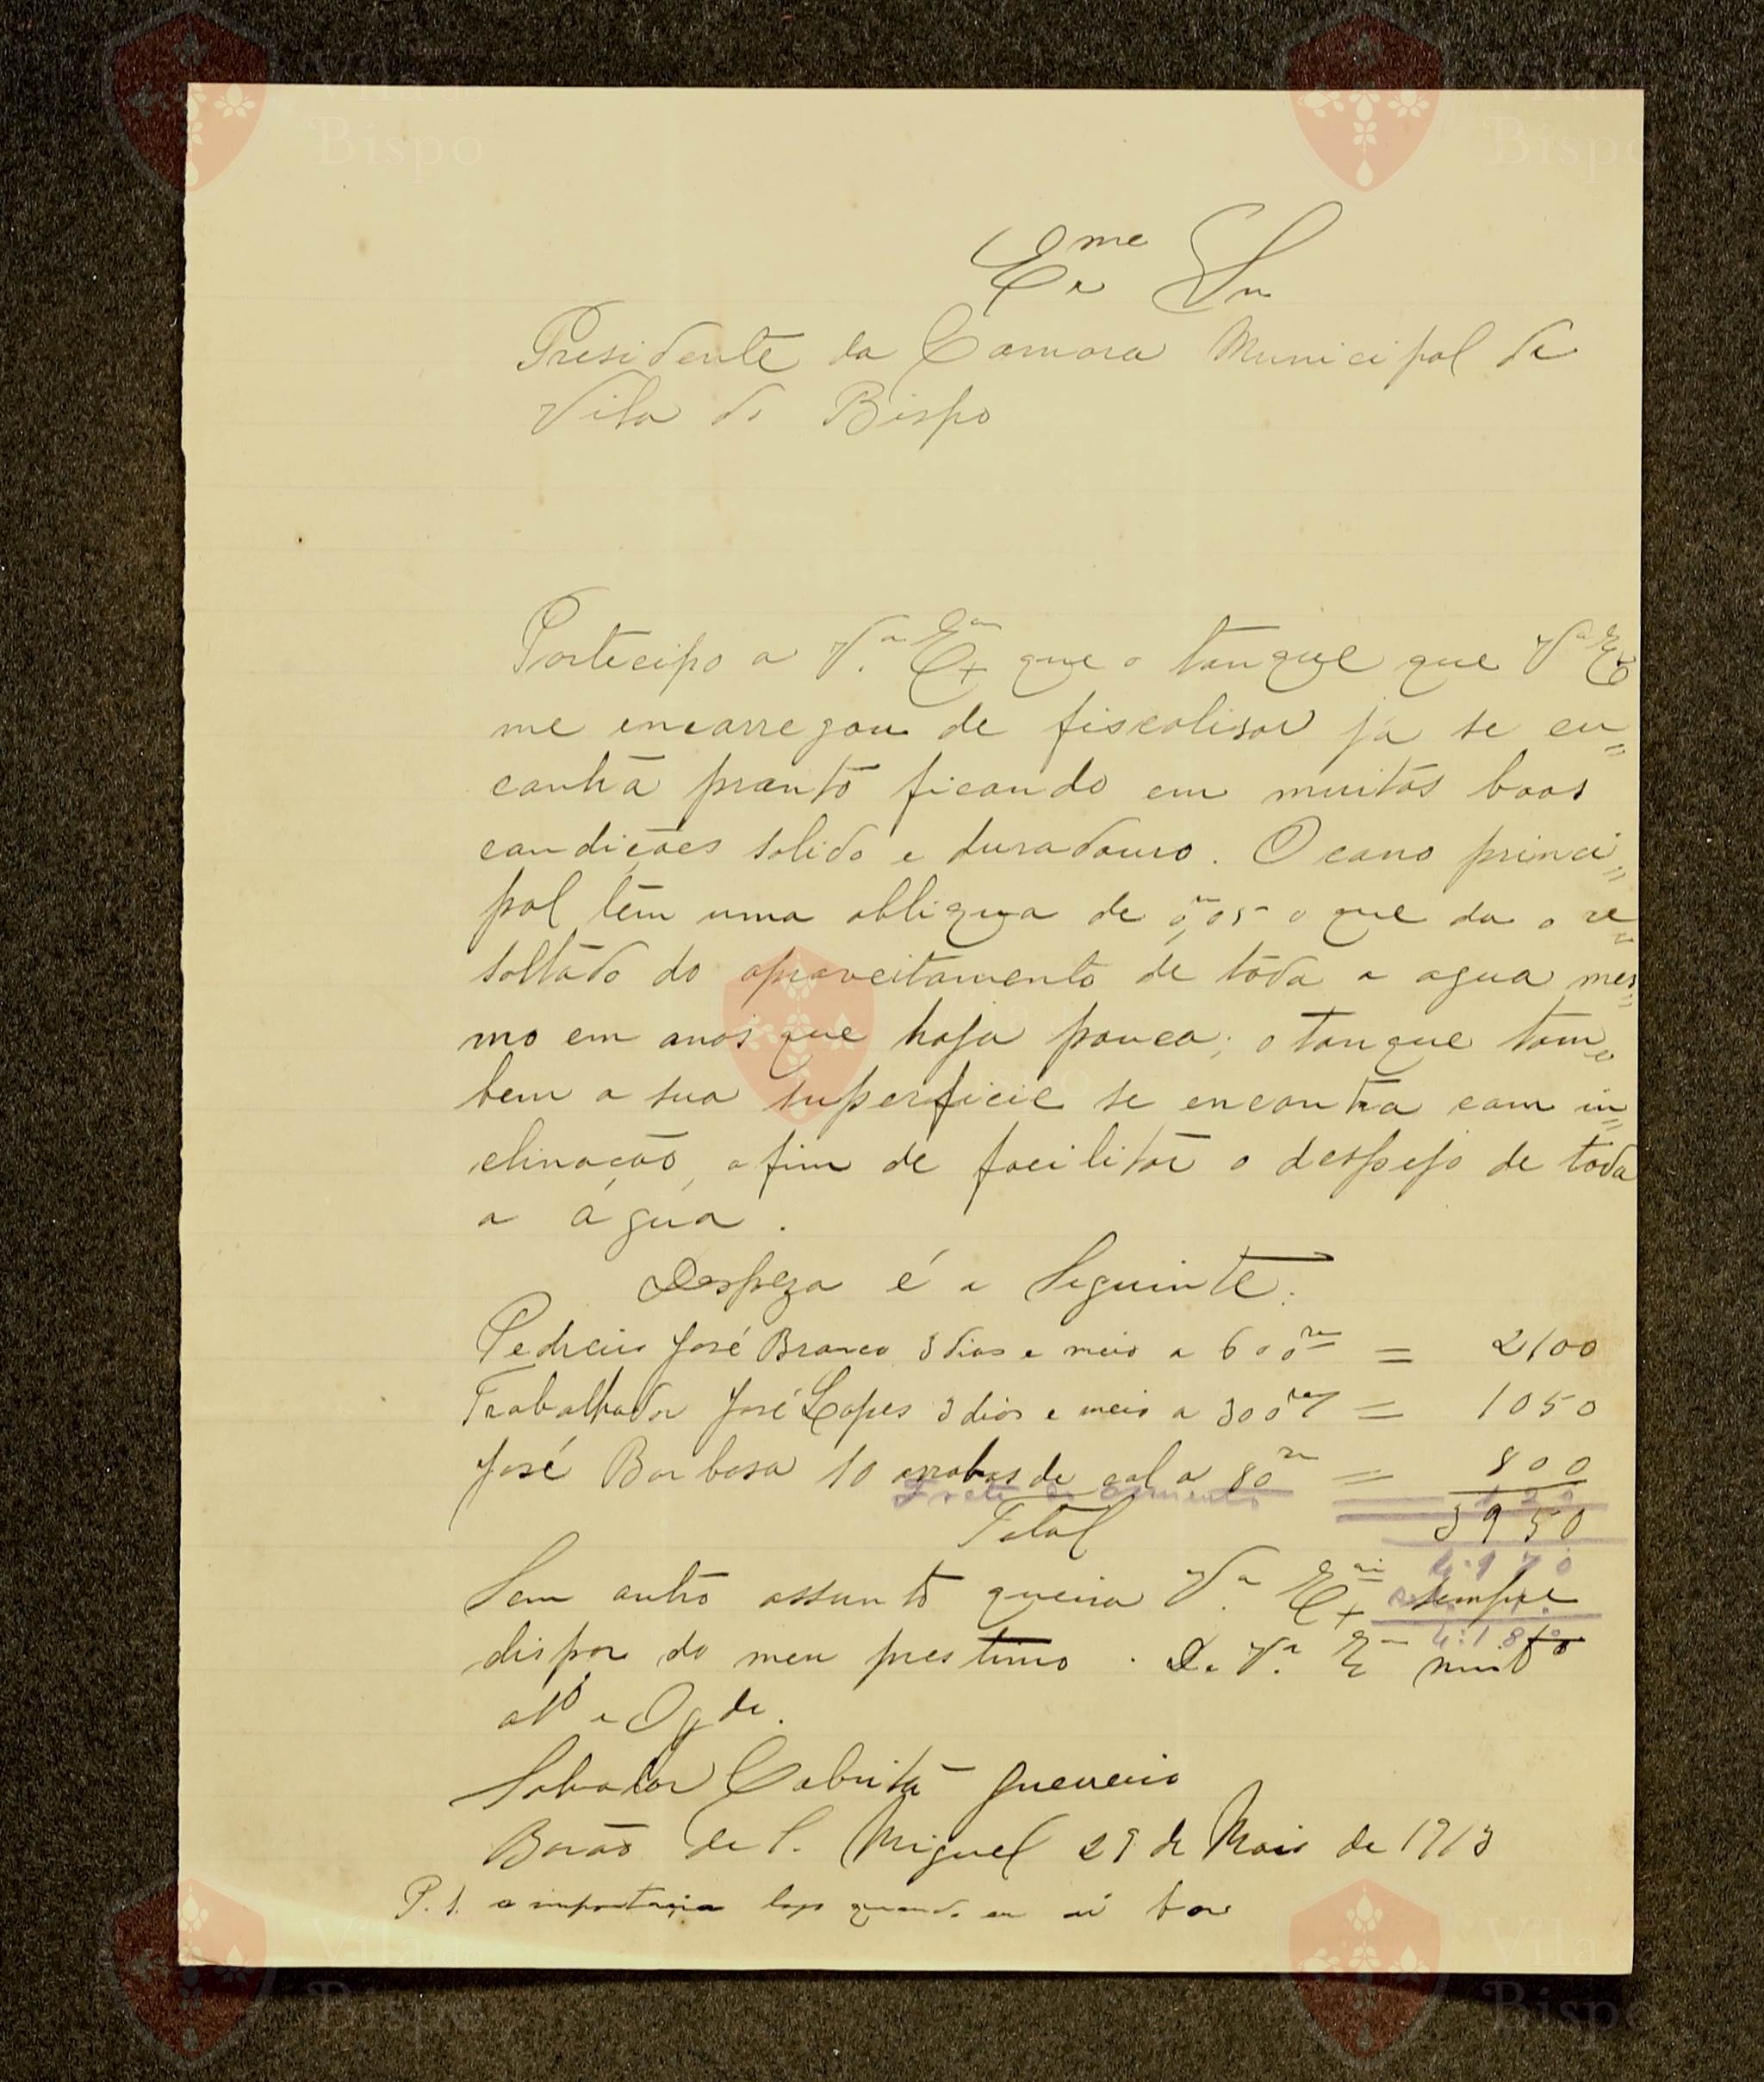 Exme Snr
Presidente da Camara Municipal de
Vila do Bispo
Partecipo a V.a Exa que o tanque que Va Ex
me encarregou de fiscalisar já se en=
contra pronto ficando em muitas boas
condições solido e duradouro. O cano princi=
pal têm uma obliqua de 0,m05 o que da o re=
soltado do aproveitamento de toda a agua mes=
mo em anos que haja pouca; o tanque tam=
bem a sua superficie se encontra com in=
clinação, a fim de facilitar o despejo de toda
a água.
Despeza é a Seguinte:
Pedreiro José Branco 3 dias e meio a 600rs = 2100
Trabalhador José Lopes 3 dias e meio a 300rs = 1050
José Barbosa 10 arrobas de cal a 80rs = 800
Frete de cimento
Total 3950
4:170
Sem outro assunto queira V.a Exa sempre
dispor do meu prestimo. De V.a Ea muito
ato e Ogdo.
Salvador Cabrita Guerreiro
Barão de S. Miguel 29 de Maio de 1913
P.S. a importancia logo quando eu aí for
Vila do
Bispo